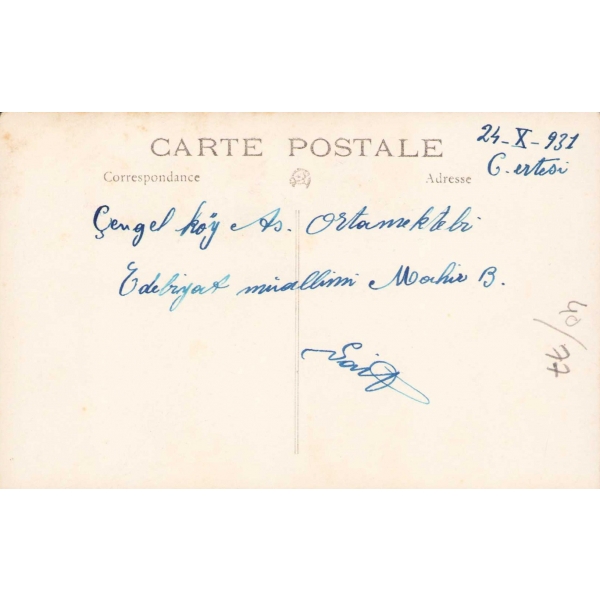 24-X-931
CARTE POSTALE
C. ertesi
Correspondance
Adresse
Çengel köy As. Ortamektebi
Edebiyat müallimi Mahir B.
Sait
40/77